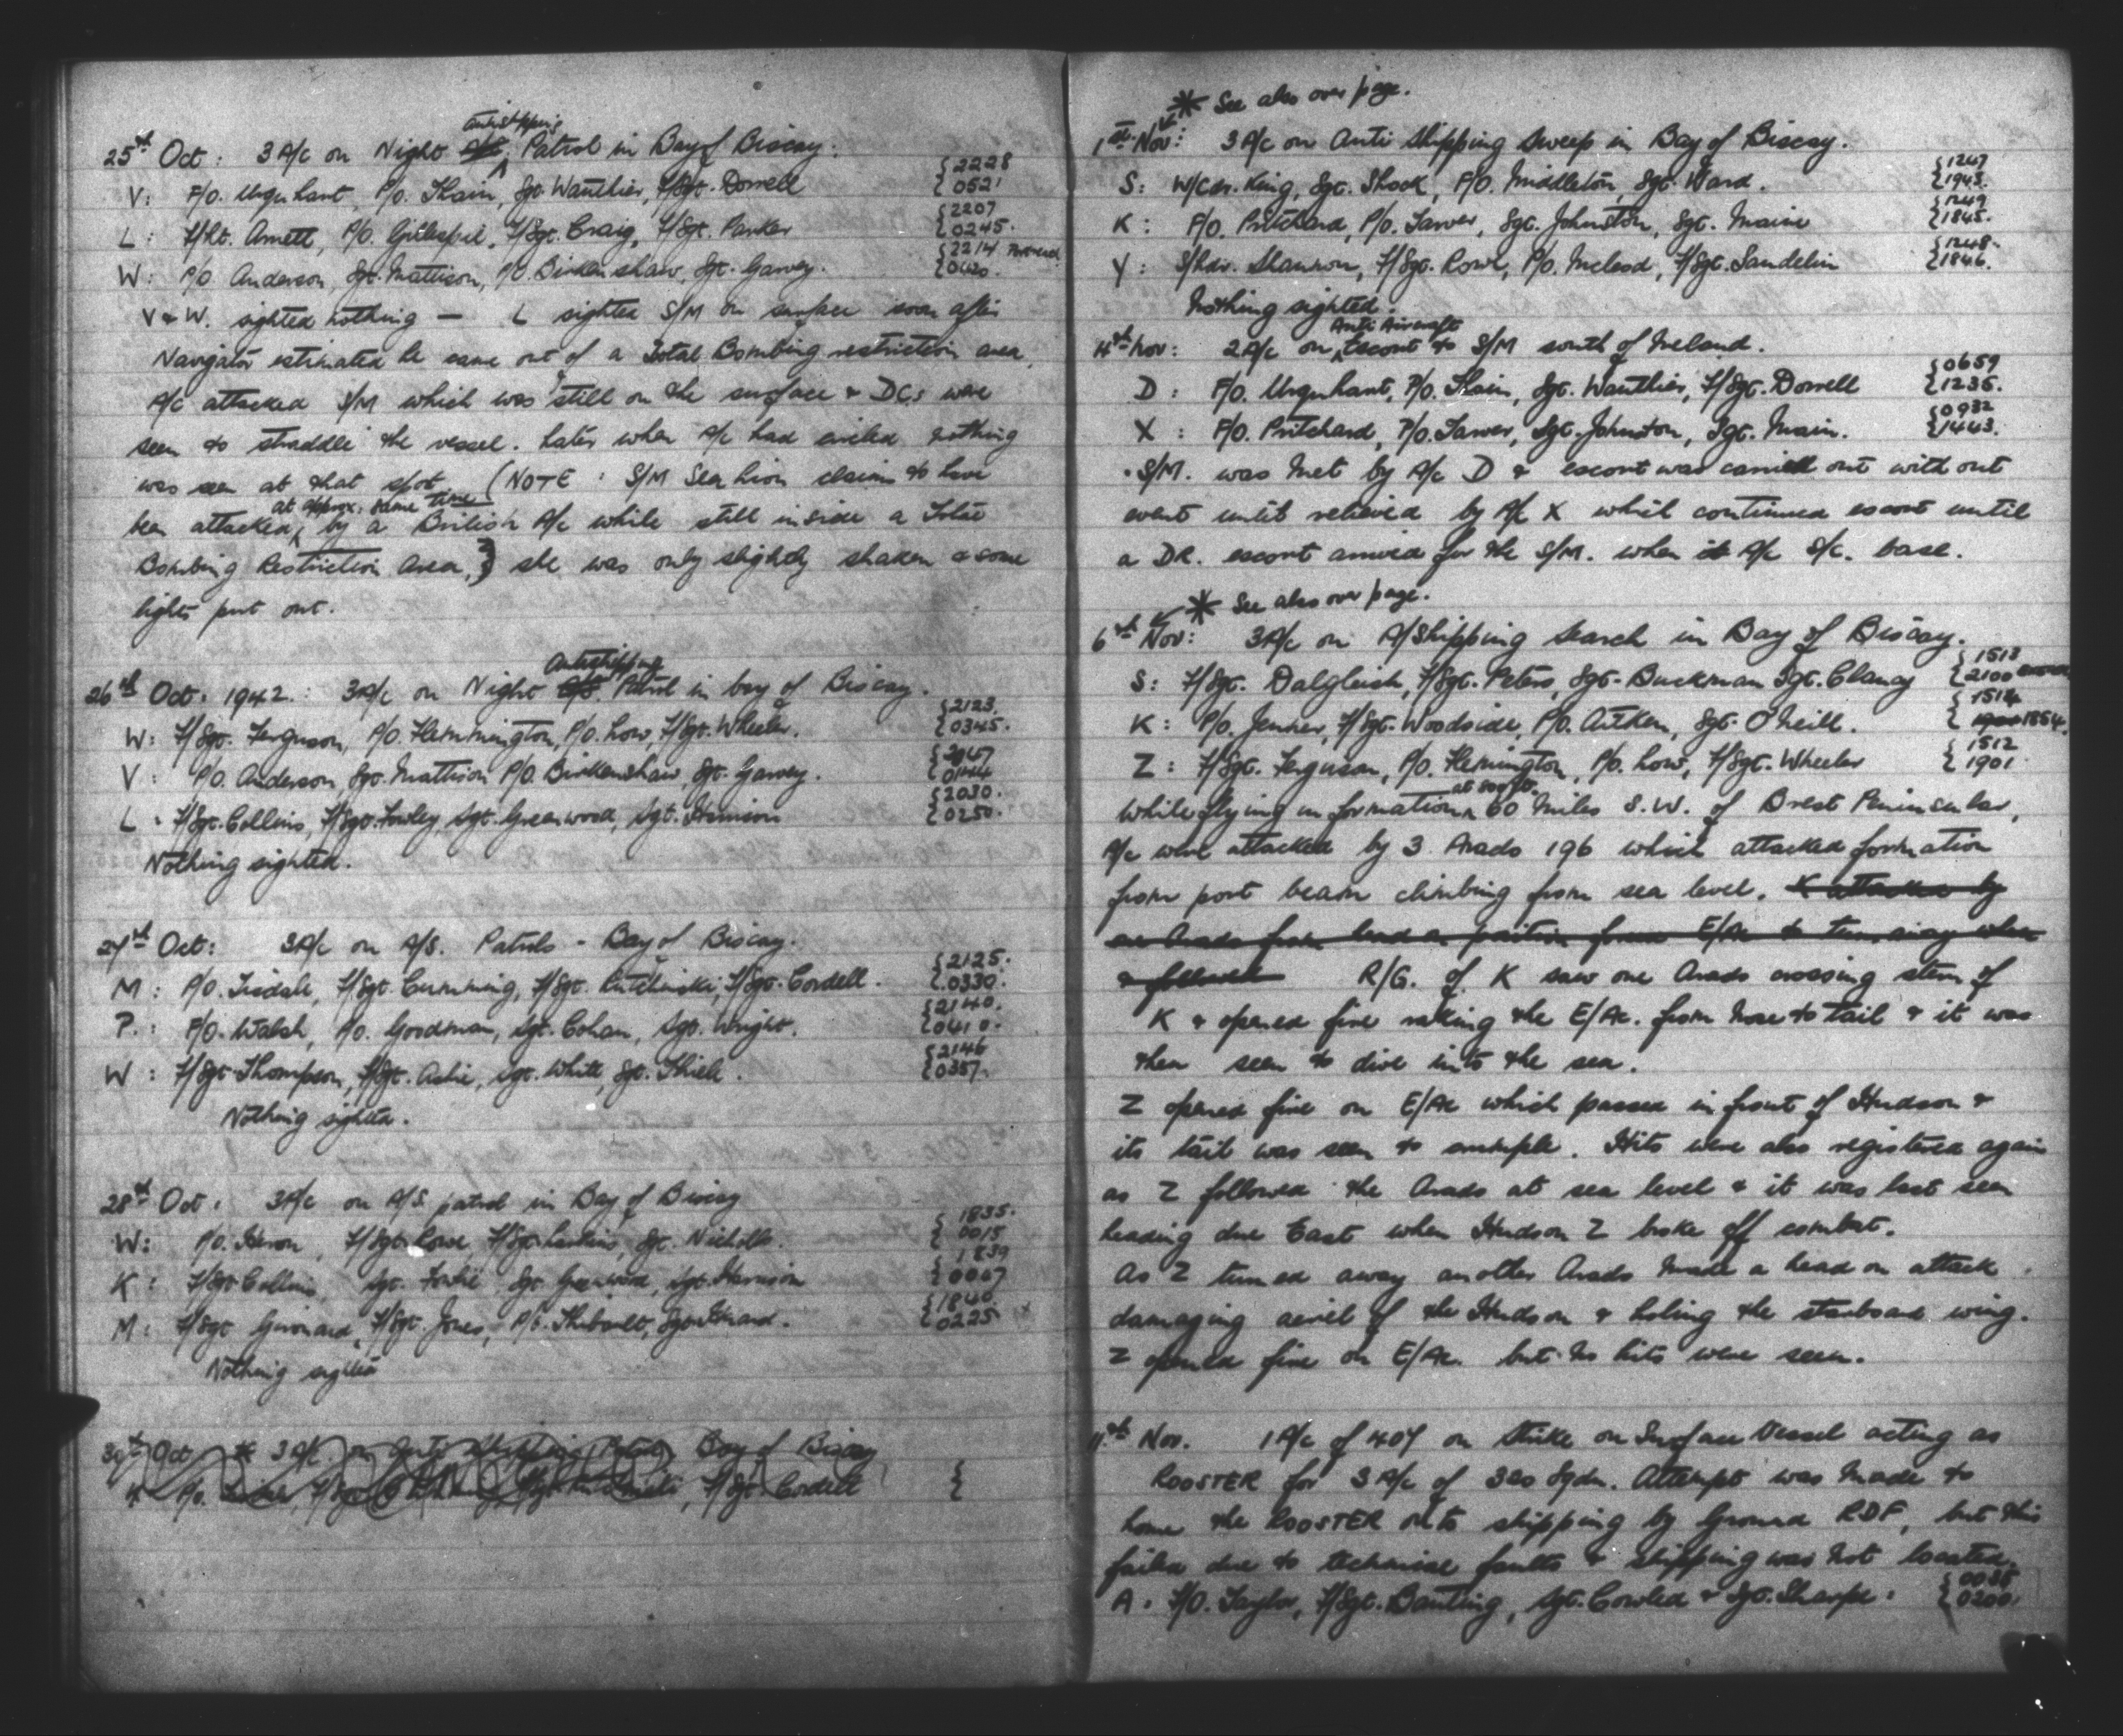 25th Oct: 3 A/c on Night A/S Antishipping Patrol in Bay of Biscay.
V: F/O. Urquhart, P/O. Thain, Sgt. Wauthier, F/Sgt. Dorrell {2228 0521
L: F/Lt. Arnett, P/O. Gillespie, F/Sgt. Craig, F/Sgt. Parker {2207 0245.
W: P/O. Anderson, Sgt. Mattison, P/O. Birkenshaw, Sgt. Garvey. {2214
V & W. sighted nothing — L sighted S/M on surface soon after
Navigator estimated he came out of a Total Bombing restriction area.
A/c attacked S/M which was still on the surface & DCs were
seen to straddle the vessel. Later when A/c had circled nothing
was seen at that spot. (NOTE: S/M Sea Lion claims to have
been attacked, at approx. same time by a British A/c while still inside a Total
Bombing Restriction Area,) she was only slightly shaken & some
lights put out.
26th Oct. 1942: 3 A/c on Night A/S. Antishipping Patrol in bay of Biscay.
W: F/Sgt. Ferguson, P/O. Flemmington, P/O. Low, F/Sgt. Wheeler. {2123. 0345.
V: P/O. Anderson, Sgt. Mattison P/O. Birkenshaw, Sgt. Garvey.
L. F/Sgt. Collins, F/Sgt. Fowley, Sgt. Greenwood, Sgt. Harrison {2030. 0250.
Nothing sighted.
27th Oct: 3 A/c on A/S. Patrols - Bay of Biscay.
M: P/O. Tisdale, F/Sgt. Cumming, F/Sgt. F/Sgt. Cordell. {2125. 0330.
P.: F/O. Walsh, P/O. Goodman, Sgt. Cohan, Sgt. Wright. {2140. 0410.
W: F/Sgt. Thompson, F/Sgt. Sgt. White, Sgt. {2146 0357.
Nothing sighted.
28th Oct. 3 A/c on A/S. patrol in Bay of Biscay
W: P/O. Heron, F/Sgt. Rowe, F/Sgt. Sgt. Nicholls. {1835. 0015
K: F/Sgt. Collins, Sgt. Sgt. Greenwood, Sgt. Harrison {1839 0007
M: F/Sgt. F/Sgt. Jones, P/O. Thibault, {1840 0225
Nothing sighted
30th Oct 3 A/c. on Anti Shipping Patrol Bay of Biscay
P/O. F/Sgt. Cordell {
* See also over page.
1st Nov: 3 A/c on Anti Shipping Sweep in Bay of Biscay.
S: W/Cdr. King, Sgt. Shook, F/O. Middleton, Sgt. Ward. {1247 1943.
K: F/O. Pritchard, P/O. Sarver, Sgt. Johnston, Sgt. Maine {1249 1845.
Y: S/Ldr. Shannon, F/Sgt. Rowe, P/O. Mcleod, F/Sgt. Sandelin {1248. 1846.
Nothing sighted.
4th Nov: 2 A/c on Anti Aircraft Escort to S/M south of Ireland.
D: F/O. Urquhart, P/O. Thain, Sgt. Wauthier, F/Sgt. Dorrell {0659 1235.
X: F/O. Pritchard, P/O. Sarver, Sgt. Johnston, Sgt. Main. {0932 1443.
S/M. was met by A/c D & escort was carried out with out
event until relieved by A/c X which continued escort until
a DR. escort arrived for the S/M. when it A/c S/c. base.
* See also over page.
6th Nov: 3 A/c on A/Shipping Search in Bay of Biscay.
S: F/Sgt. Dalgleish, F/Sgt. Peters, Sgt. Buckman Sgt. Clancy {1513 2100
K: P/O. Jenner, F/Sgt. Woodside, P/O. Aitken, Sgt. O'Neill. {1514 1854.
Z: F/Sgt. Ferguson, P/O. Flemington, P/O. Low, F/Sgt. Wheeler {1512 1901
While flying in formation at 500ft. 60 miles S.W. of Brest Peninsular,
A/c were attacked by 3 Arados 196 which attacked formation
from port beam climbing from sea level. K attacked by
one Arado from E/Ac to turn away when
& followed R/G. of K saw one Arado crossing stern of
K & opened fire raking the E/Ac. from nose to tail & it was
then seen to dive into the sea.
Z opened fire on E/Ac which passed in front of Hudson &
its tail was seen to crumple. Hits were also registered again
as Z followed the Arado at sea level & it was last seen
heading due East when Hudson Z broke off combat.
As Z turned away another Arado made a head on attack
damaging aeriel of the Hudson & holing the starboard wing.
Z opened fire on E/Ac. but no hits were seen.
11th Nov. 1 A/c of 407 on Strike on Surface Vessel acting as
ROOSTER for 3 A/c of 320 Sqdn. Attempt was made to
home the ROOSTER onto shipping by Ground RDF, but this
failed due to technical faults & shipping was not located.
A. F/O. Taylor, F/Sgt. Banting, Sgt. Cowled & Sgt. Sharpe. {0038 0200.